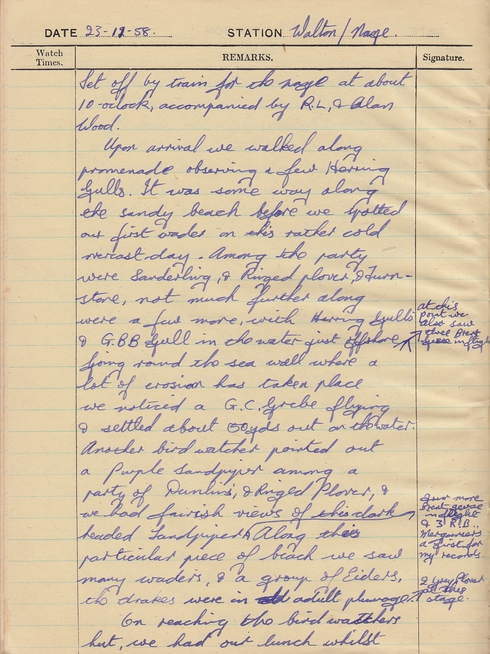 DATE 23-12-58. STATION Walton / Naze.
Watch Times. REMARKS. Signature.
Set off by train for the naze at about
10-oclock, accompanied by R.L, & Alan
Wood.
Upon arrival we walked along
promenade observing a few Herring
Gulls. It was some way along
the sandy beach before we spotted
our first wader on this rather cold
overcast day. Among the party
were Sanderling, & Ringed plover, & Turn-
stone, not much further along
were a few more, with Herring Gulls
& G.B.B Gull in the water just offshore
Going round the sea wall where a
lot of erosion has taken place
we noticed a G.C. Grebe flying
& settled about 60yds out on the water.
Another bird watcher pointed out
a Purple Sandpiper among a
party of Dunlins, & Ringed Plover, &
we had fairish views of this dark
headed Sandpiper. Along this
particular piece of beach we saw
many waders, & a group of Eiders,
the drakes were in adult plumage
On reaching the bird watchers
hut, we had our lunch whilst
at this
point we
also saw
three Brent
geese in flight
Four more
Brent geese
in flight
& 3 R.B.
Mergansers
a first for
my records.
2 Grey Plover
at this
stage.